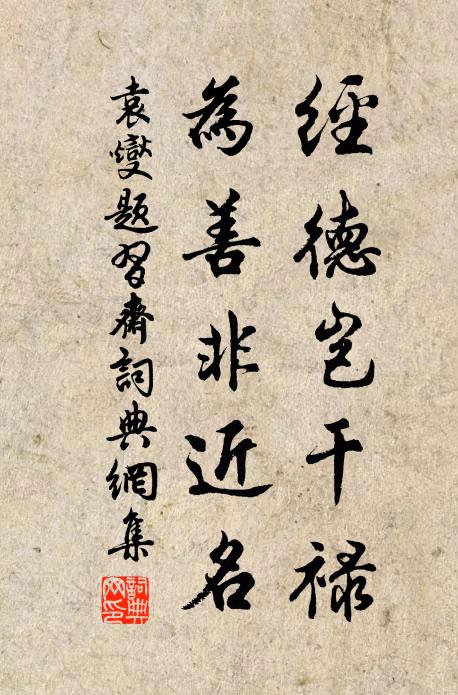 經德岂干禄
為善非近名
袁燮題習齋詞典網集
詞典网印